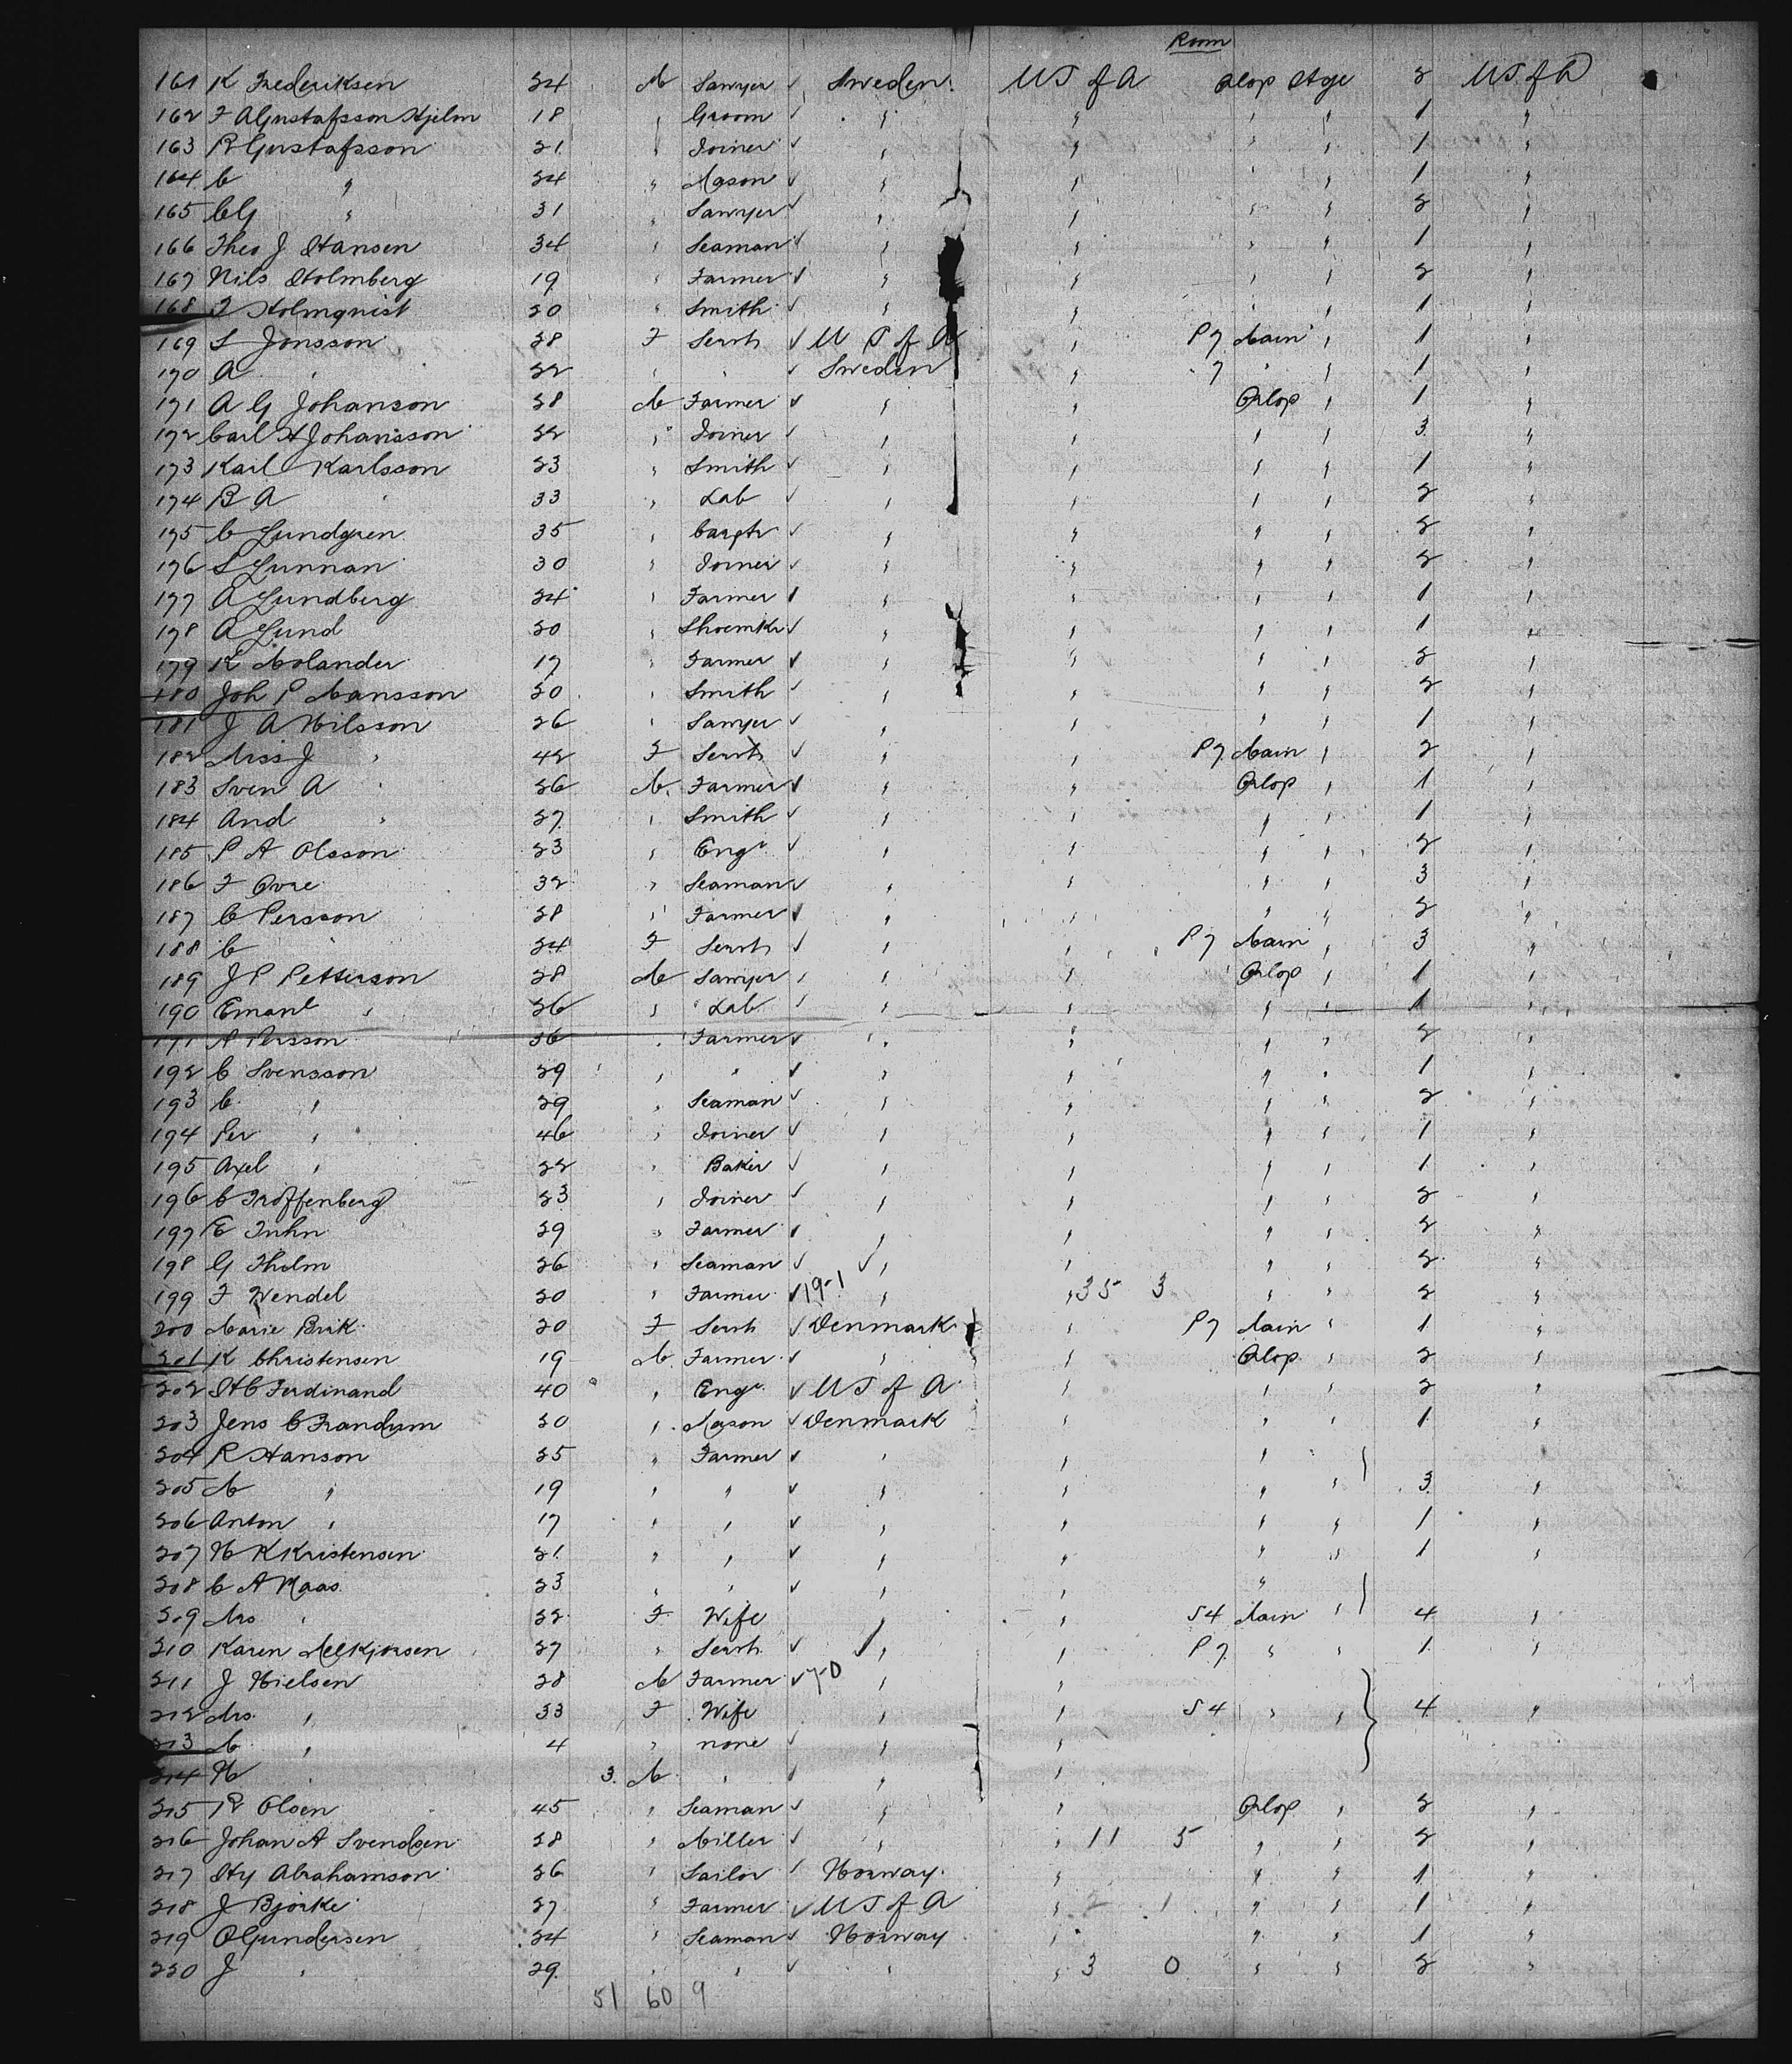 Room
161 K Frederiksen 24 M Sawyer ✓ Sweden US of A Orlop Stge 2 US of A
162 F A Gustafsson Hjelm 18 " Groom ✓ " " " " 1 "
163 R Gustafsson 21 " Joiner ✓ " " " " 1 "
164 C " 24 " Mason ✓ " " " " 1 "
165 C G " 31 " Sawyer ✓ " " " " 2 "
166 Theo J Hansen 34 " Seaman ✓ " " " " 1 "
167 Nils Holmberg 19 " Farmer ✓ " " " " 2 "
168 F Holmqvist 20 " Smith ✓ " " " " 1 "
169 S Jonsson 28 F Servt ✓ US of A " P7 Main " 1 "
170 A " 22 " " ✓ Sweden " " 7 " " 1 "
171 A G Johanson 28 M Farmer ✓ " " Orlop " 1 "
172 Carl A Johansson 22 " Joiner ✓ " " " " 3 "
173 Karl Karlsson 23 " Smith ✓ " " " " 1 "
174 B A " 33 " Lab ✓ " " " " 2 "
175 C Lundgren 35 " Carptr ✓ " " " " 2 "
176 S Lunnan 30 " Joiner ✓ " " " " 2 "
177 A Lundberg 24 " Farmer ✓ " " " " 1 "
178 A Lund 20 " Shoemkr ✓ " " " " 1 "
179 K Molander 17 " Farmer ✓ " " " " 2 "
180 Joh P Mansson 20 " Smith ✓ " " " " 2 "
181 J A Nilsson 26 " Sawyer ✓ " " " " 1 "
182 Miss J " 42 F Servt ✓ " " P7 Main " 2 "
183 Sven A " 26 M Farmer ✓ " " Orlop " 1 "
184 And " 27 " Smith ✓ " " " " 1 "
185 P A Olsson 23 " Engr ✓ " " " " 2 "
186 F Ovre 32 " Seaman ✓ " " " " 3 "
187 C Persson 28 " Farmer ✓ " " " " 2 "
188 C " 24 F Servt ✓ " " P7 Main " 3 "
189 J P Petterson 28 M Sawyer " " " Orlop " 1 "
190 Emanl " 26 " Lab ✓ " " " " 1 "
191 A Persson 36 " Farmer ✓ " " " " 2 "
192 C Svensson 29 " " ✓ " " " " 1 "
193 C " 29 " Seaman ✓ " " " " 2 "
194 Per " 46 " Joiner ✓ " " " " 1 "
195 Axel " 22 " Baker ✓ " " " " 1 "
196 C Troffenberg 23 " Joiner ✓ " " " " 2 "
197 E Tuhn 29 " Farmer ✓ " " " " 2 "
198 G Tholm 26 " Seaman ✓ ✓ " " " " 2 "
199 F Wendel 20 " Farmer ✓ 19-1 " " 35 3 " " 2 "
200 Marie Brik 20 F Servt ✓ Denmark " P7 Main " 1 "
201 K Christensen 19 M Farmer ✓ " " Orlop " 2 "
202 H C Ferdinand 40 " Engr ✓ US of A " " " 2 "
203 Jens C Frandsen 20 " Mason ✓ Denmark " " " 1 "
204 R Hanson 25 " Farmer ✓ " " "
205 M " 19 " " ✓ " " " " 3 "
206 Anton " 17 " " ✓ " " " " 1 "
207 N K Kristensen 21 " " ✓ " " " " 1 "
208 C A Maas 23 " " ✓ " " "
209 Mrs " 22 F Wife " " S4 Main " 4 "
210 Karen Melkjorsen 27 " Servt ✓ ✓ " " P7 " " 1 "
211 J Nielsen 28 M Farmer ✓ 7-0 " "
212 Mrs " 33 F Wife " " S4 " " 4 "
213 C " 4 " none ✓ " "
214 N " 3 M " ✓ " "
215 R Olsen 45 " Seaman ✓ " " Orlop " 2 "
216 Johan A Svendsen 28 " Miller ✓ " " 11 5 " " 2 "
217 Hy Abrahamson 26 " Sailor ✓ Norway " " " 1 "
218 J Bjorke 27 " Farmer ✓ US of A " 2 1 " " 1 "
219 O Gundersen 24 " Seaman ✓ Norway " " " 1 "
220 J " 29 " " ✓ " " 3 0 " " 2 "
51 60 9